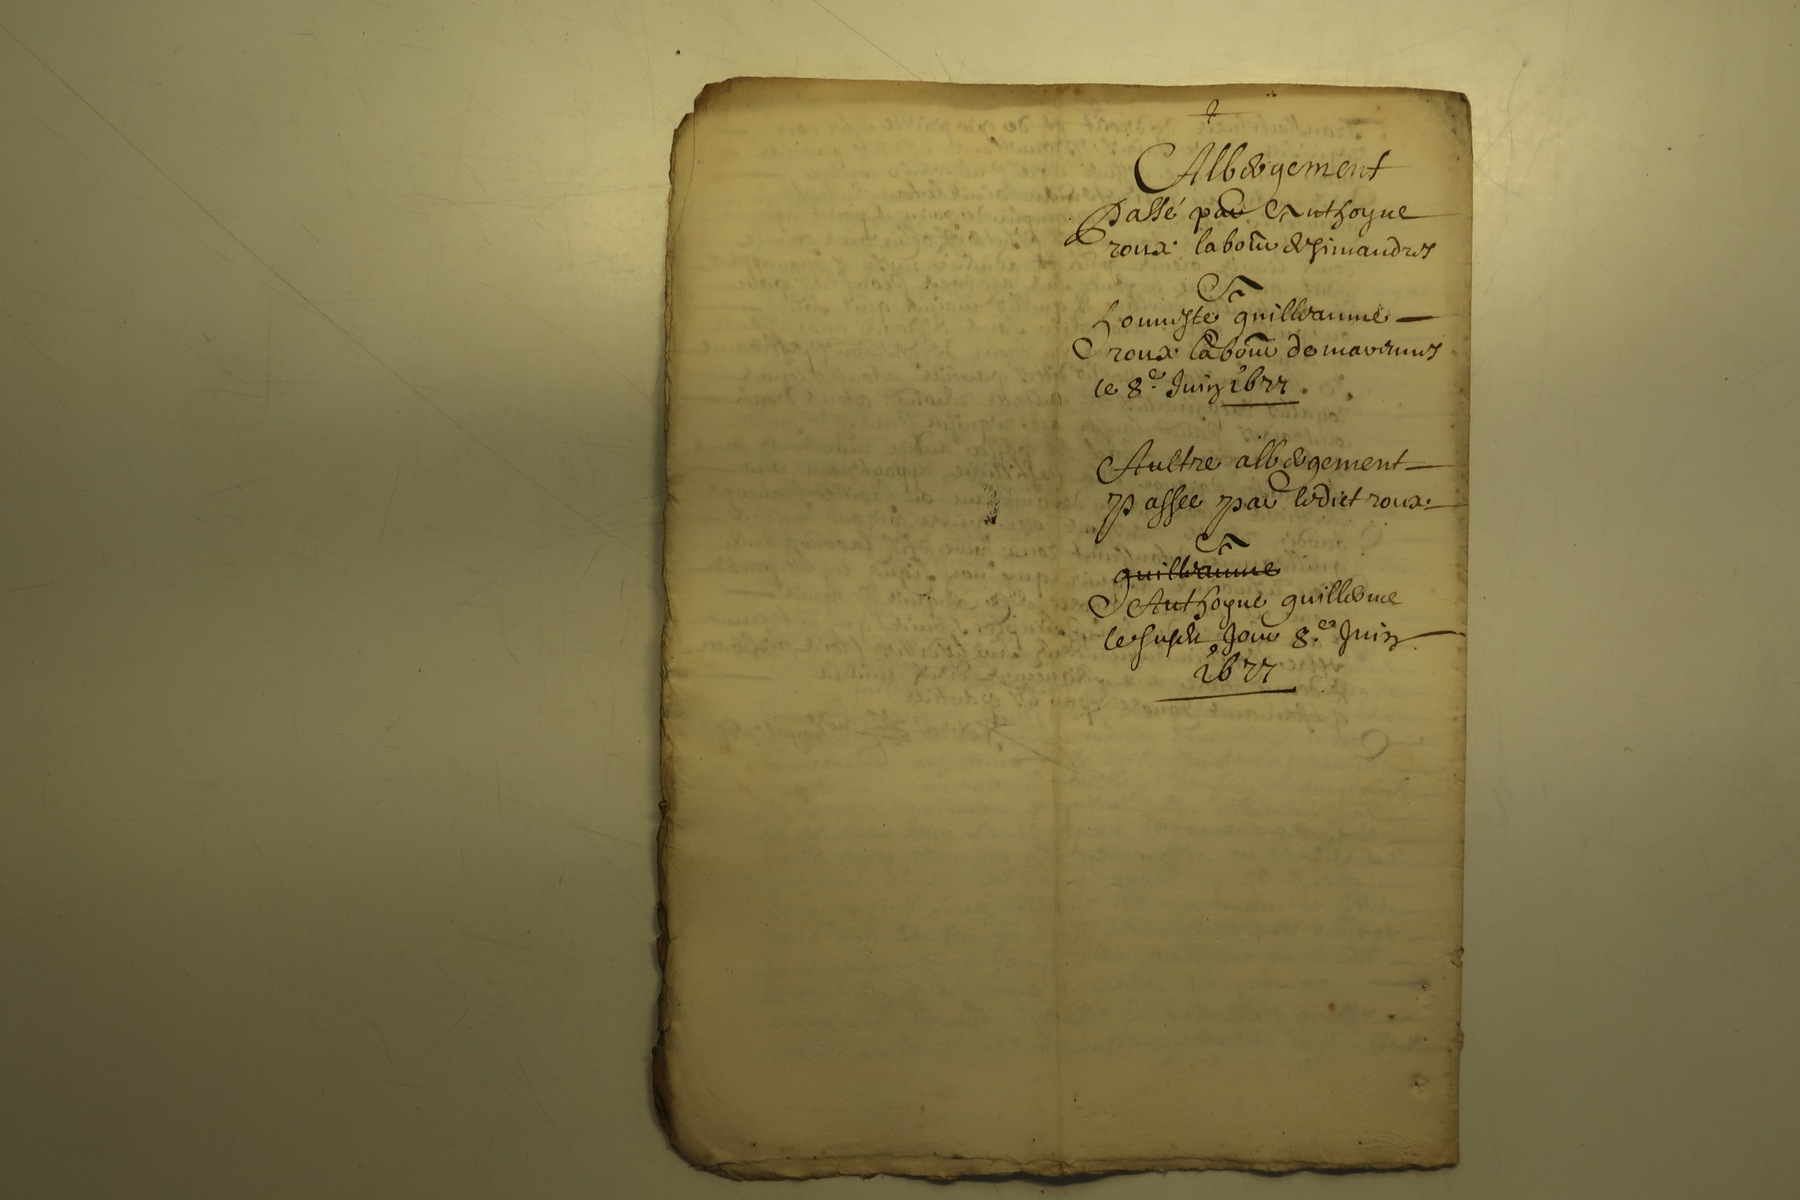 Albergement
Passé par Anthoyne
roux labour de Simandres
A
honneste guillaume
roux labour de marennes
le 8e Juin 1677
Aultre albergement
passee par ledict roux
A
guillaume
Anthoyne guillerme
le susdit Jour 8e Juin
1677